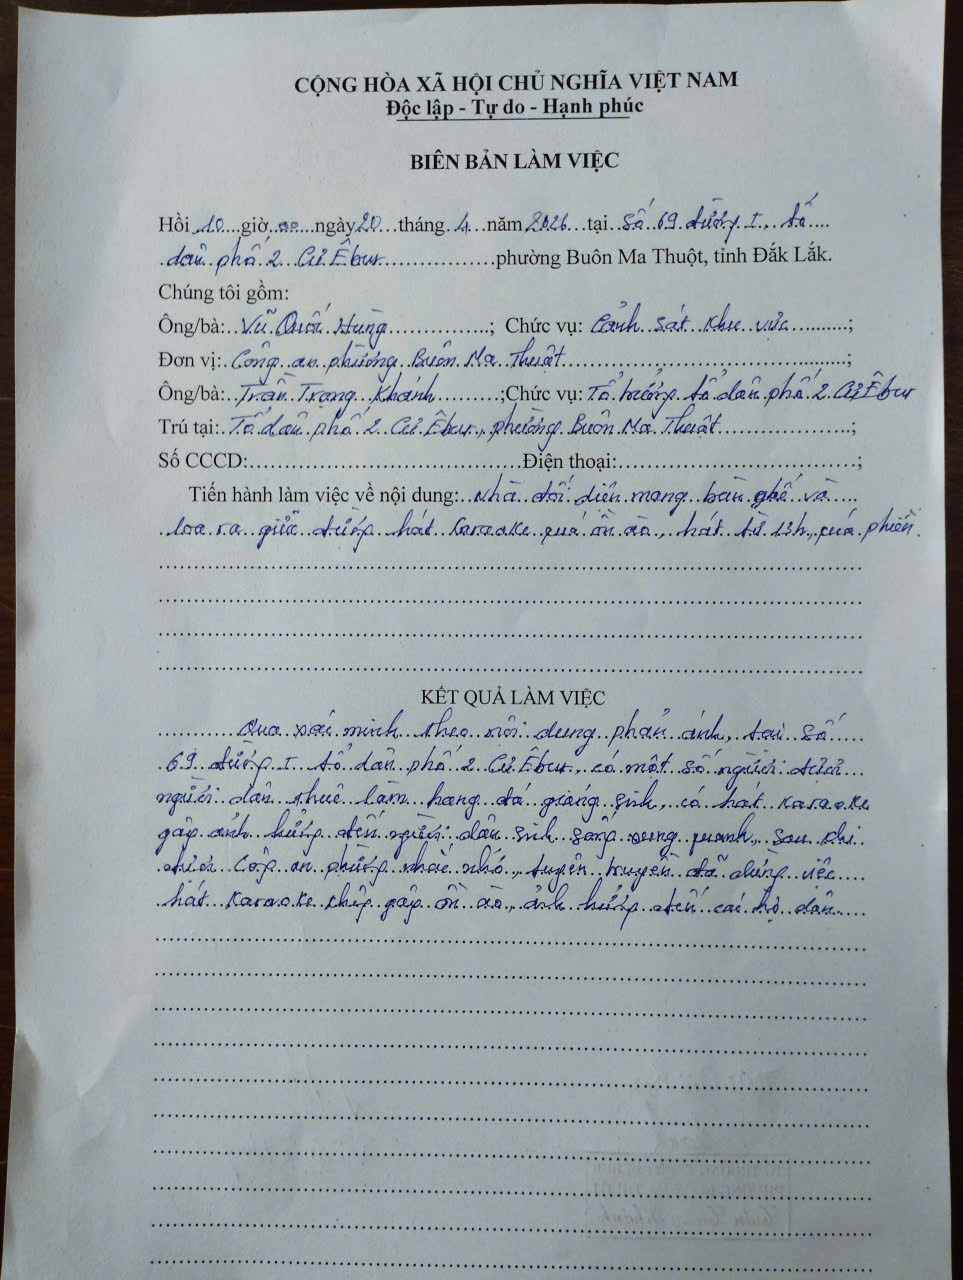 CỘNG HÒA XÃ HỘI CHỦ NGHĨA VIỆT NAM
Độc lập - Tự do - Hạnh phúc
BIÊN BẢN LÀM VIỆC
Hồi 10 giờ 00 ngày 20 tháng 4 năm 2026 tại Số 69 đường I, tổ
dân phố 2 Cư Êbur phường Buôn Ma Thuột, tỉnh Đắk Lắk.
Chúng tôi gồm:
Ông/bà: Vũ Quốc Hùng; Chức vụ: Cảnh sát khu vực;
Đơn vị: Công an phường Buôn Ma Thuột;
Ông/bà: Trần Trọng Khánh; Chức vụ: Tổ trưởng tổ dân phố 2 Cư Êbur
Trú tại: Tổ dân phố 2 Cư Êbur, phường Buôn Ma Thuột;
Số CCCD: Điện thoại: ;
Tiến hành làm việc về nội dung: Nhà đối diện mang bàn ghế và
loa ra giữa đường hát karaoke quá ồn ào, hát từ 13h, quá phiền.
KẾT QUẢ LÀM VIỆC
Qua xác minh theo nội dung phản ánh, tại số
69 đường I tổ dân phố 2 Cư Êbur, có một số người được
người dân thuê làm hang đá giáng sinh, có hát karaoke
gây ảnh hưởng đến người dân sinh sống xung quanh, sau khi
được Công an phường nhắc nhở, tuyên truyền đã dừng việc
hát karaoke không gây ồn ào, ảnh hưởng đến các hộ dân